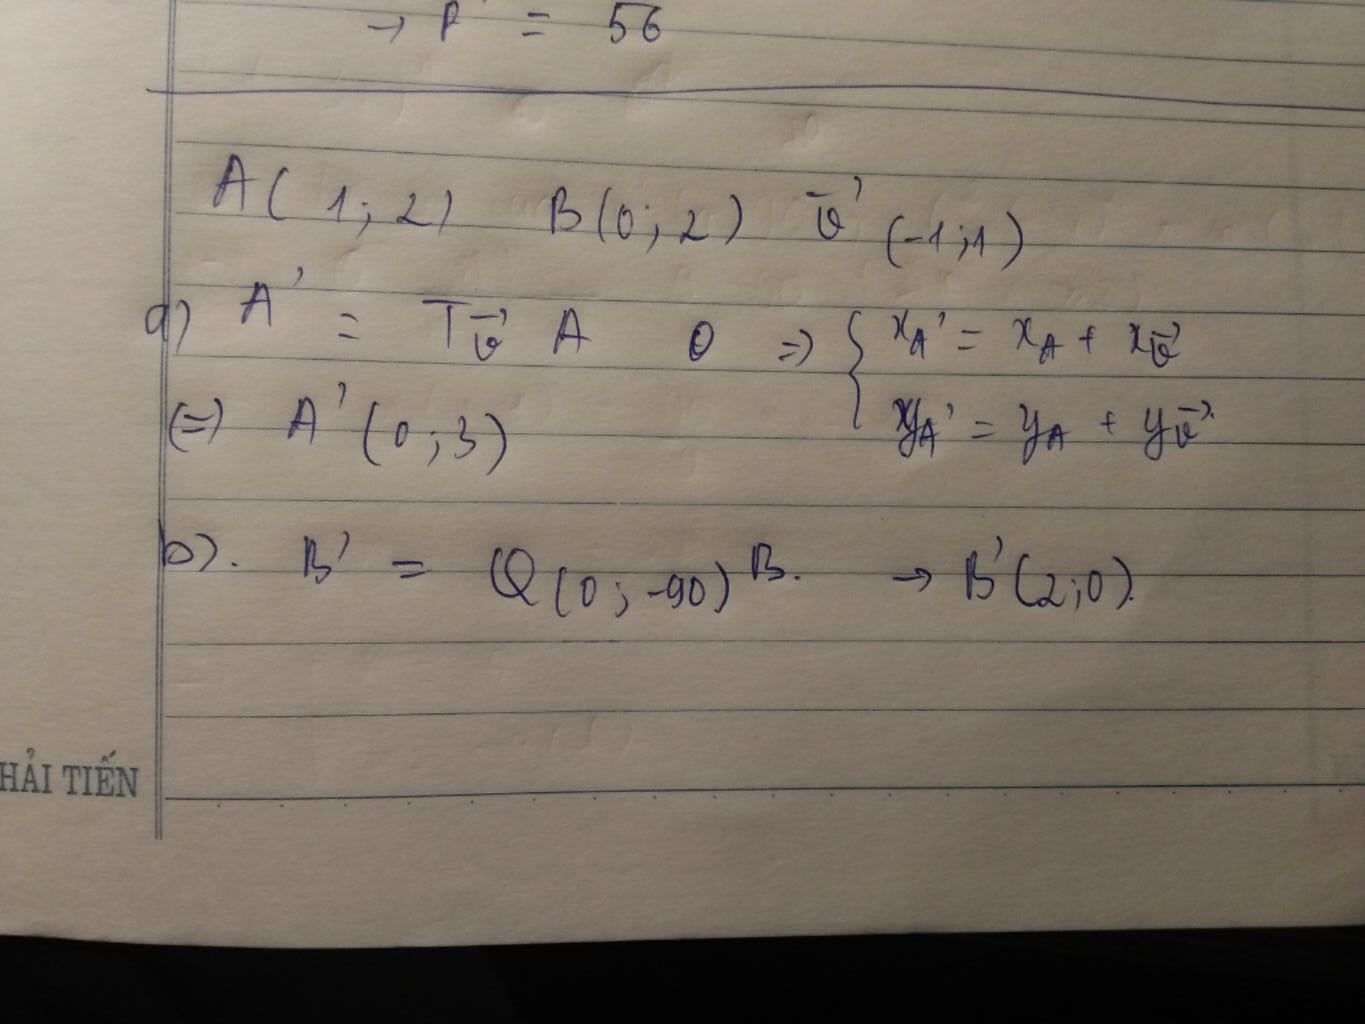 → P' = 56
A( 1 ; 2) B(0 ; 2) v⃗ (-1 ; 1)
a) A' = Tv⃗ A 0 => { xA' = xA + xv⃗
yA' = yA + yv⃗
(=) A' (0 ; 3)
b). B' = Q(0 ; -90) B. → B'(2;0).
HẢI TIẾN